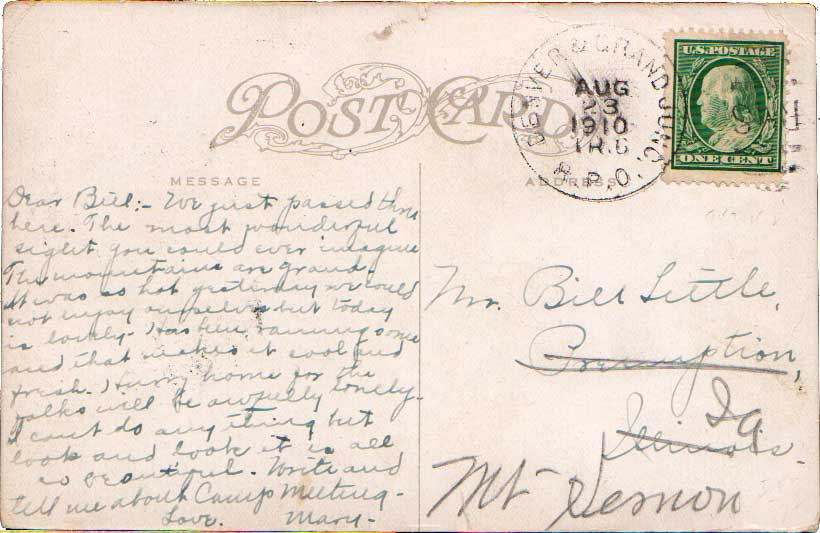 POST CARD
DENVER & GRAND JUNC.
AUG
23
1910
TR.6
R.P.O.
U.S. POSTAGE
ONE CENT
MESSAGE
ADDRESS
Dear Bill:- We just passed thru
here. The most wonderful
sight you could ever imagine
The mountains are grand.
It was so hot yesterday we could
not enjoy ourselves but today
is lovely. Has been raining some
and that makes it cool and
fresh. Hurry home for the
folks will be awfully lonely.
I cant do anything but
look and look it is all
so beautiful. Write and
tell me about Camp Meeting.
Love. Mary-
Mr. Bill Little,
Preemption,
Ia
Illinois.
Mt Vernon